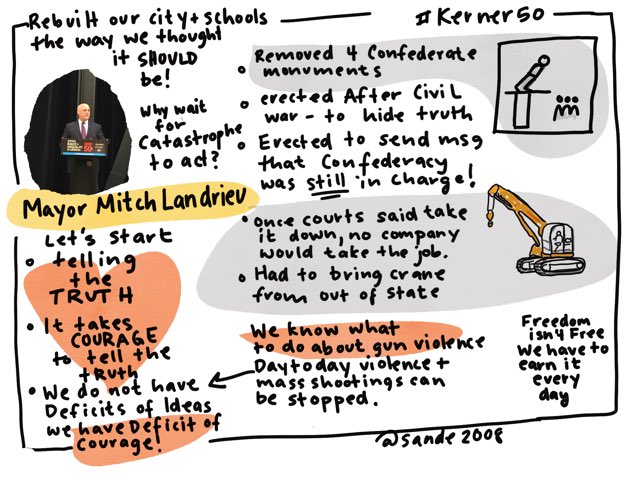 Rebuilt our city + schools
the way we thought
it SHOULD
be!
#Kerner50
Why wait
for
Catastrophe
to act?
Mayor Mitch Landrieu
Let's start
• telling
the
TRUTH
• It takes
COURAGE
to tell the
truth
• We do not have
Deficits of Ideas
we have Deficit of
Courage!
• Removed 4 Confederate
monuments
• erected After Civil
war - to hide truth
• Erected to send msg
that Confederacy
was still in charge!
• once courts said take
it down, no company
would take the job.
• Had to bring crane
from out of state
We know what
to do about gun violence
Day to day violence +
mass shootings can
be stopped.
Freedom
isn4 Free
We have to
earn it
every
day
@sande2008